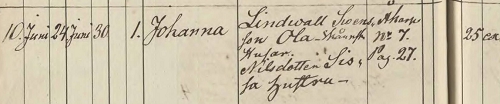 10. Juni 24. Juni 30. 1. Johanna Lindwall Swens, Åkarp
son Ola Skånska N: 7.
Husar. Pag. 27. 25 en
Nilsdotter Sis,
sa hustru